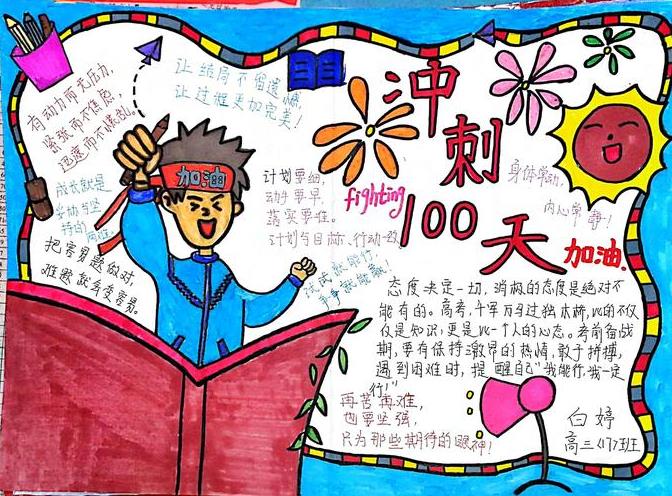 冲刺
100天
加油
有动力而无压力,
紧张而不焦虑,
迅速而不慌乱。
让结局不留遗憾,
让过程更加完美!
加油
成长就是
持的
把容易题做对,
难题就会变容易。
计划要细,
动手要早,
落实要准。
计划与目标、行动一致
fighting
身体常动,
内心常静!
试试就能行,
争争就能赢!
态度决定一切,消极的态度是绝对不
能有的。高考,千军万马过独木桥,比的不仅
仅是知识,更是比一个人的心态。考前备战
期,要有保持激昂的热情,敢于拼搏,
遇到困难时,提醒自己“我能行,我一定
行!”
再苦再难,
也要坚强,
只为那些期待的眼神!
白婷
高三(17)班